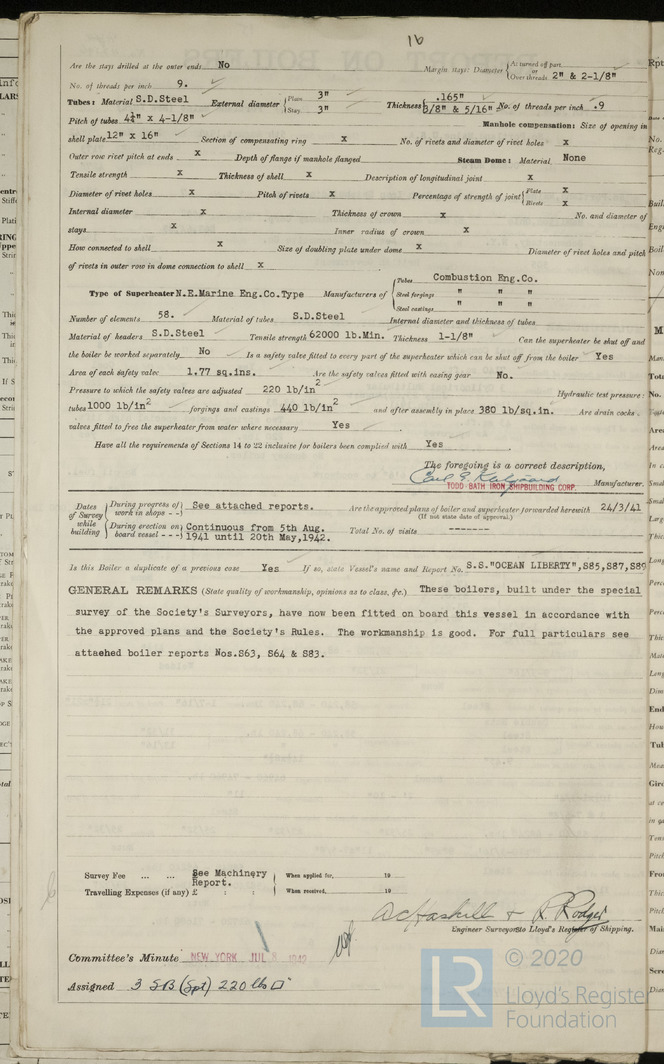 16
Are the stays drilled at the outer ends No Margin stays: Diameter { At turned off part, or Over threads. 2" & 2-1/8"
No. of threads per inch 9.
Tubes: Material S.D.Steel External diameter { Plain 3" Stay 3" Thickness { .165" 3/8" & 5/16" No. of threads per inch .9
Pitch of tubes 4¼" x 4-1/8" Manhole compensation: Size of opening in
shell plate 12" x 16" Section of compensating ring x No. of rivets and diameter of rivet holes x
Outer row rivet pitch at ends x Depth of flange if manhole flanged Steam Dome: Material None
Tensile strength x Thickness of shell x Description of longitudinal joint x
Diameter of rivet holes x Pitch of rivets x Percentage of strength of joint { Plate x Rivets x
Internal diameter x Thickness of crown x No. and diameter of
stays x Inner radius of crown x
How connected to shell x Size of doubling plate under dome x Diameter of rivet holes and pitch
of rivets in outer row in dome connection to shell x
Type of Superheater N.E.Marine Eng.Co.Type Manufacturers of { Tubes Combustion Eng.Co.
Steel forgings " " "
Steel castings " " "
Number of elements 58. Material of tubes S.D.Steel Internal diameter and thickness of tubes
Material of headers S.D.Steel Tensile strength 62000 lb.Min. Thickness 1-1/8" Can the superheater be shut off and
the boiler be worked separately No Is a safety valve fitted to every part of the superheater which can be shut off from the boiler Yes
Area of each safety valve 1.77 sq.ins. Are the safety valves fitted with easing gear No.
Pressure to which the safety valves are adjusted 220 lb/in2 Hydraulic test pressure:
tubes 1000 lb/in2 forgings and castings 440 lb/in2 and after assembly in place 380 lb/sq.in. Are drain cocks
valves fitted to free the superheater from water where necessary Yes
Have all the requirements of Sections 14 to 22 inclusive for boilers been complied with Yes
The foregoing is a correct description,
TODD-BATH IRON SHIPBUILDING CORP. Manufacturer.
Dates of Survey while building { During progress of work in shops - - } See attached reports. Are the approved plans of boiler and superheater forwarded herewith 24/3/41
(If not state date of approval.)
{ During erection on board vessel - - - } Continuous from 5th Aug. 1941 until 20th May,1942. Total No. of visits -------
Is this Boiler a duplicate of a previous case Yes If so, state Vessel's name and Report No. S.S."OCEAN LIBERTY",S85,S87,S89
GENERAL REMARKS (State quality of workmanship, opinions as to class, &c.) These boilers, built under the special
survey of the Society's Surveyors, have now been fitted on board this vessel in accordance with
the approved plans and the Society's Rules. The workmanship is good. For full particulars see
attached boiler reports Nos.S63, S64 & S83.
Survey Fee ... ... See Machinery Report. When applied for, 19
Travelling Expenses (if any) £ : : When received, 19
A C Haskell & R. Rodger
Engineer Surveyors to Lloyd's Register of Shipping.
Committee's Minute NEW YORK JUL 8 1942
Assigned 3 SB (Spt) 220 lbs
LR © 2020
Lloyd's Register
Foundation